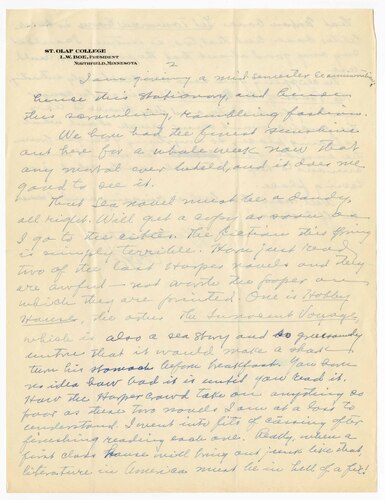 ST. OLAF COLLEGE
L.W. BOE, PRESIDENT
NORTHFIELD, MINNESOTA
2
I am giving a mid semester examination,
hence this stationary, and hence
this scrawling, rambling fashion.
We have had the finest sunshine
out here for a whole week now that
any mortal ever beheld, and it does me
good to see it.
That sea novel must be a dandy
all right. Will get a copy as soon as
I go to the cities. The fiction this Spring
is simply terrible. Have just read
two of the last Harper novels and they
are awful – not worth the paper on
which they are printed. One is Hobby
House, the other The Innocent Voyage,
which is also a sea story and so gruesomely
that it would make a shark
turn his stomach before breakfast. You have
no idea how bad it is until you read it.
How the Harper Crowd take on anything so
poor as these two novels I am at a loss to
understand. I went into fits of cursing after
finishing reading each one. Really, when a
first class house will bring out junk like that
literature in America must be in hell of a fix!